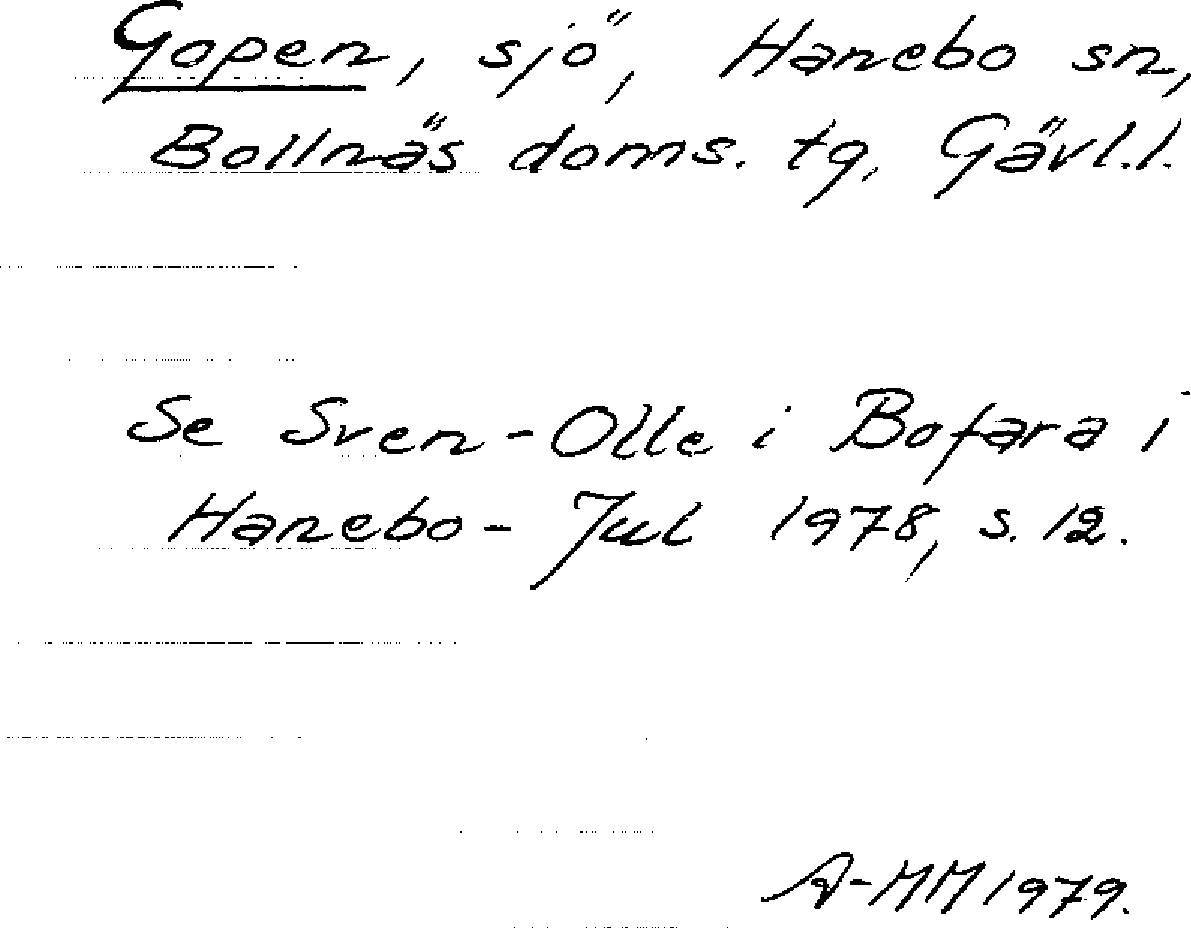 Gopen, sjö, Hanebo sn,
Bollnäs doms. tg, Gävl.l.
Se Sven-Olle i Bofara i
Hanebo- Jul 1978, s. 12.
A-MM 1979.